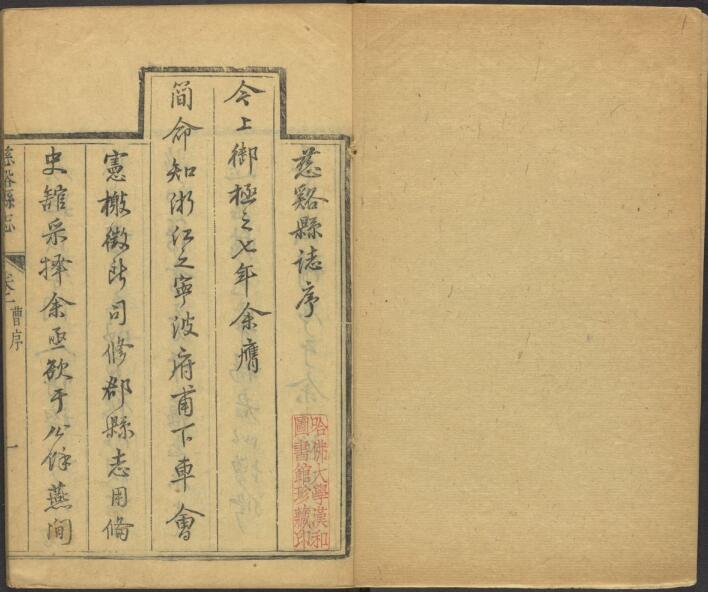 慈谿縣誌序
哈佛大學漢和
圖書館珍藏印
今上御極之七年余膺
簡命知浙江之寧波府甫下車會
憲檄徵所司修郡縣志用備
史舘采擇余亟欲于公餘燕閒
慈谿縣志
卷一
曹序
一
1